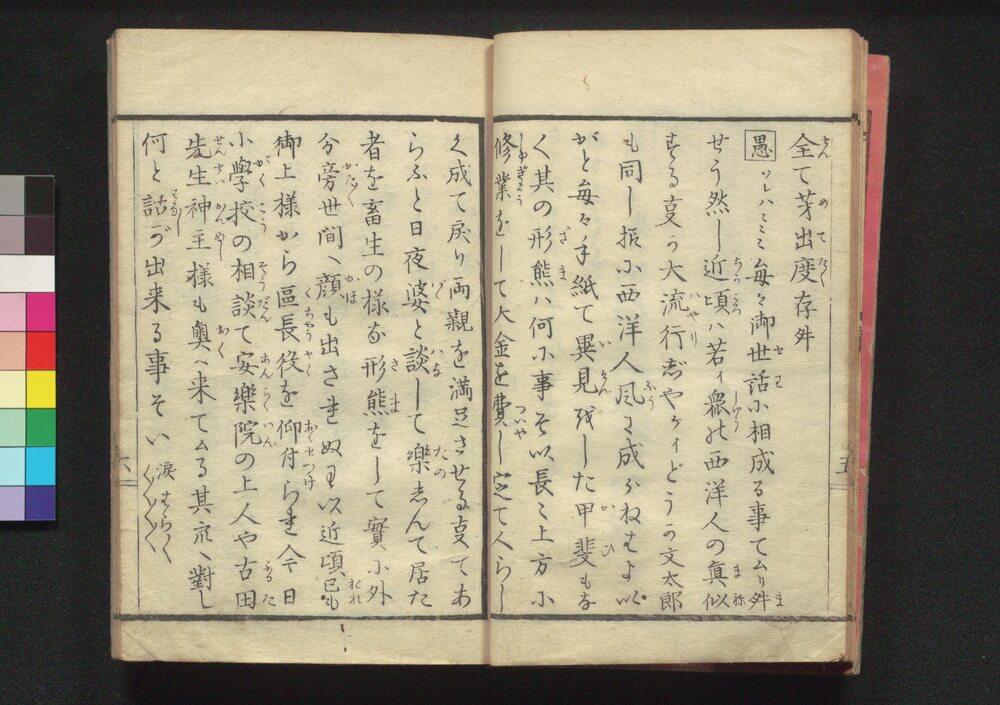 全て芽出度存舛
愚 ソレハミミ毎々御世話小相成る事てムり舛
せう然し近頃ハ若イ衆の西洋人の真似
する事が大流行ぢやゲイどうか文太郎
も同し振小西洋人風に成らねばよいい
がと毎々手紙て異見をした甲斐もな
く其の形態ハ何小事そい長々上方小
修業をして大金を費し定て人らし
く成て戻り両親を満足させる事てあ
らふと日夜婆と談して楽しんて居た
者を畜生の様な形態をして實小外
分旁世間へ顔も出されぬわい近頃已も
御上様から區長役を仰付られ今日
小學校の相談て安樂院の上人や古田
先生神主様も奥へ来てムる其衆へ對し
何と話が出来る事そい 涙はら〱
五
六